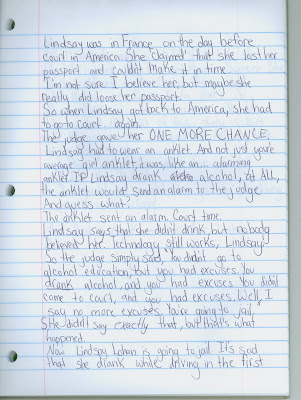 Lindsay was in France on the day before
court in America. She "claimed" that she lost her
passport and couldn't make it in time.
I'm not sure I believe her, but maybe she
really did loose her passport.
So when Lindsay got back to America, she had
to go to court... again.
The judge gave her ONE MORE CHANCE.
Lindsay had to wear an anklet. And not just you're
average girl anklet, it was, like an... alarming
anklet. IF Lindsay drank alcohol, at ALL,
the anklet would send an alarm to the judge.
And guess what?
The anklet sent an alarm. Court time.
Lindsay says that she didn't drink, but nobody
believed her. Technology still works, Lindsay.
So the judge simply said, "You didn't go to
alcohol education, but you had excuses. You
drank alcohol, and you had excuses. You didn't
come to court, and you had excuses. Well, I
say no more excuses. You're going to jail."
She didn't say exactly that, but that's what
happened.
Now Lindsay Lohan is going to jail. It's sad
that she drank while driving in the first